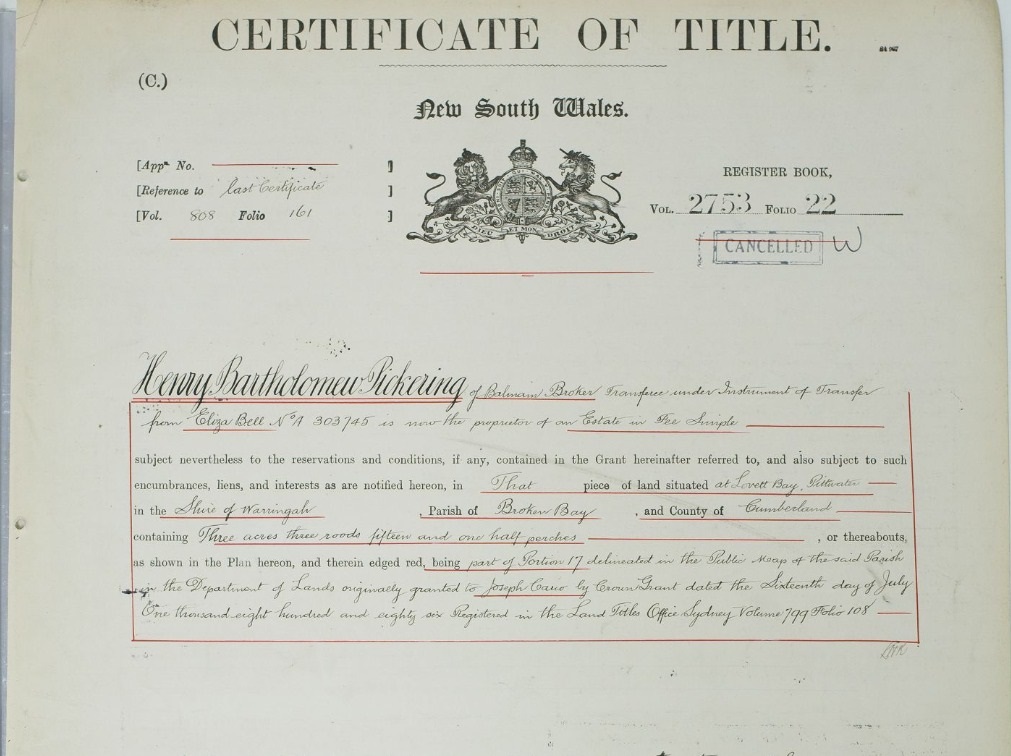 CERTIFICATE OF TITLE.
(C.)
New South Wales.
[Appn No.            ]
[Reference to last Certificate ]
[Vol. 808 Folio 161 ]
REGISTER BOOK,
VOL. 2753 FOLIO 22
CANCELLED W
DIEU ET MON DROIT
Henry Bartholomew Pickering of Balmain Broker Transferee under Instrument of Transfer
from Eliza Bell No A 303745 is now the proprietor of an Estate in Fee Simple
subject nevertheless to the reservations and conditions, if any, contained in the Grant hereinafter referred to, and also subject to such
encumbrances, liens, and interests as are notified hereon, in That piece of land situated at Lovett Bay, Pittwater
in the Shire of Warringah , Parish of Broken Bay , and County of Cumberland
containing Three acres three roods fifteen and one half perches , or thereabouts,
as shown in the Plan hereon, and therein edged red, being part of Portion 17 delineated in the Public Map of the said Parish
in the Department of Lands originally granted to Joseph by Crown Grant dated the Sixteenth day of July
One thousand eight hundred and eighty six Registered in the Land Titles Office Sydney Volume 799 Folio 108